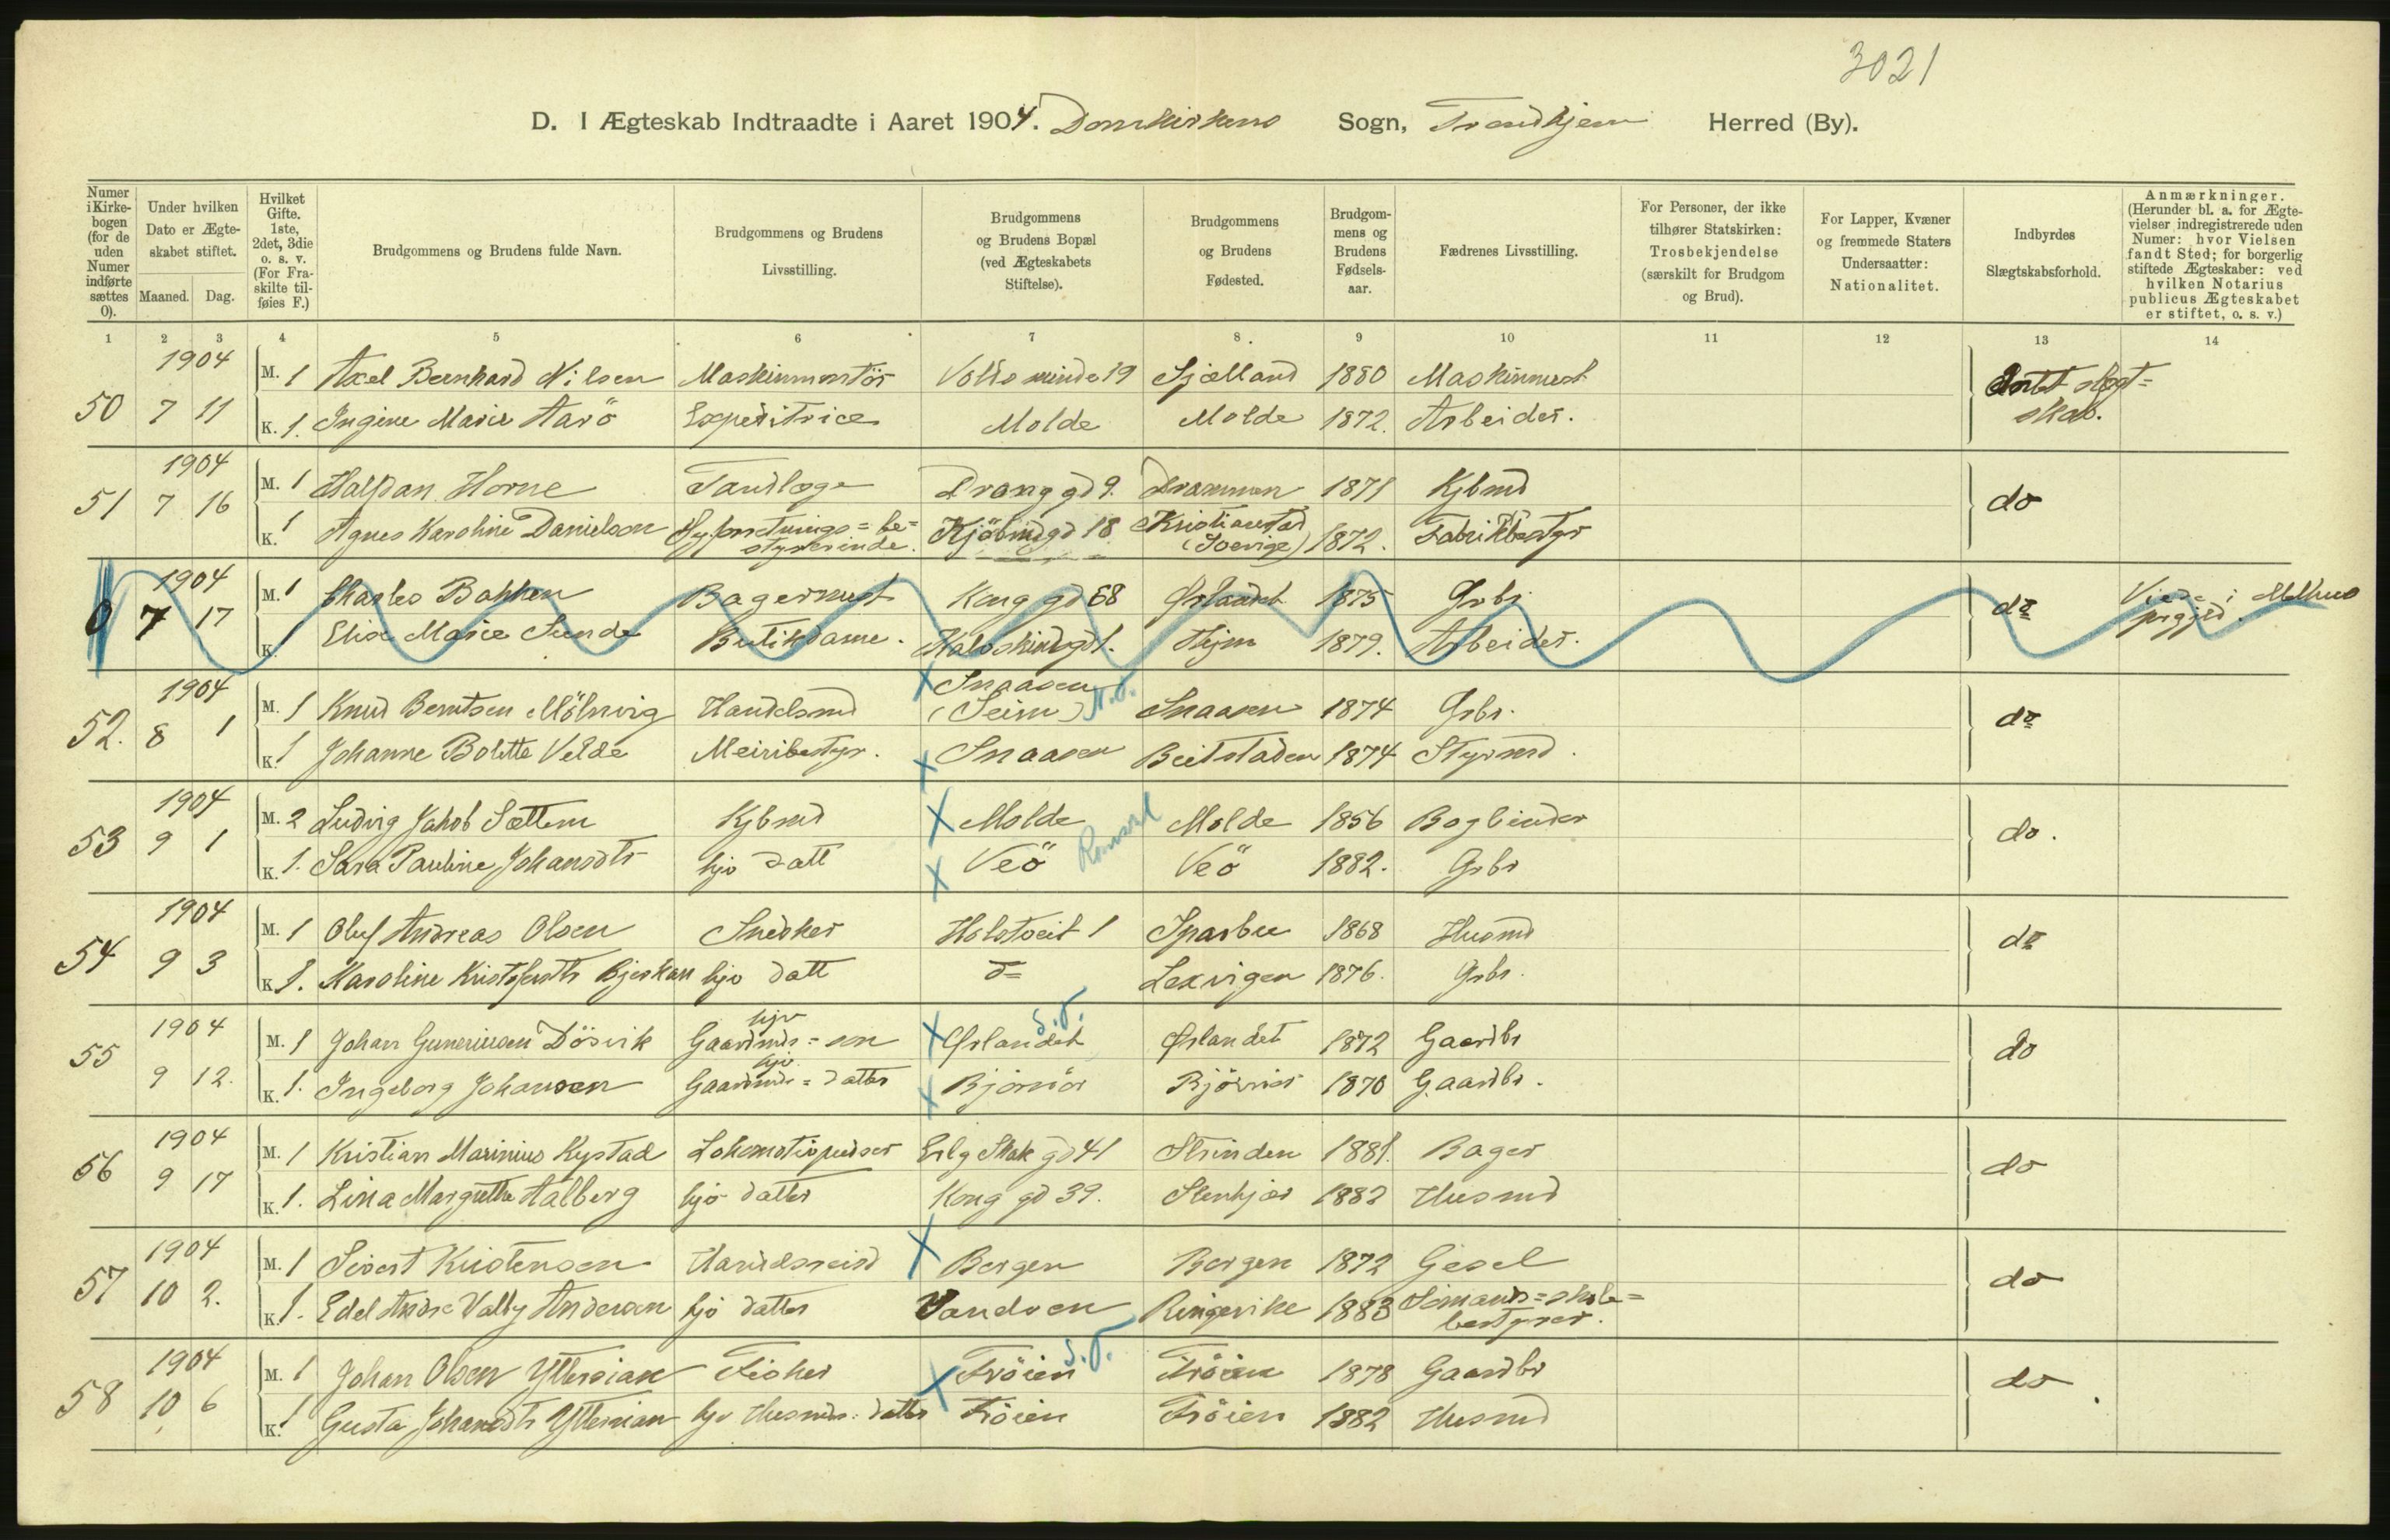 3021
D. I Ægteskab Indtraadte i Aaret 1904. Domkirkens Sogn, Trondhjem Herred (By).
Numer i Kirke-bogen (for de uden Numer indførte sættes 0).
Under hvilken Dato er Ægte-skabet stiftet.
Maaned. Dag.
Hvilket Gifte. 1ste, 2det, 3die o. s. v. (For Fra-skilte til-føies F.)
Brudgommens og Brudens fulde Navn.
Brudgommens og Brudens Livsstilling.
Brudgommens og Brudens Bopæl (ved Ægteskabets Stiftelse).
Brudgommens og Brudens Fødested.
Brudgom-mens og Brudens Fødsels-aar.
Fædrenes Livsstilling.
For Personer, der ikke tilhører Statskirken: Trosbekjendelse (særskilt for Brudgom og Brud).
For Lapper, Kvæner og fremmede Staters Undersaatter: Nationalitet.
Indbyrdes Slægtskabsforhold.
Anmærkninger. (Herunder bl. a. for Ægte-vielser indregistrerede uden Numer: hvor Vielsen fandt Sted; for borgerlig stiftede Ægteskaber: ved hvilken Notarius publicus Ægteskabet er stiftet, o. s. v.)
1 2 3 4 5 6 7 8 9 10 11 12 13 14
1904
M. 1 Axel Bernhard Nilsen Maskinmontör Voldsminde 19 Sjælland 1880 Maskinmest Intet slægt=
50 7 11
K. 1. Ingine Marie Aarö Expeditrice Molde Molde 1872. Arbeider. skab.
1904
M. 1 Halfdan Horne Tandlæge Drong gd 9. Drammen 1871 Kjbmd
51 7 16 do
K. 1 Agnes Karoline Danielson be= styrerinde. Kjöbmdgd 18 Kristianstad (Sverige) 1872. Fabrikbestyr
1904
M. 1 Charles Bakken Bagermest Kong gd 68 Ørlandet 1875 Gbr. Viede i Melhus
0 7 17 do prgjld.
K. Elise Marie Sunde Butikdame. Kalvskindgd 1. Thjm 1879. Arbeider.
1904
M. 1 Knud Berntsen Mölnvig Handelsmd Snaasen (Seim) N.T. Snaasen 1874 Gbr.
52. 8 1 do
K. 1 Johanne Bolette Velde Meieribestyr. Snaasen Beitstaden 1874 Styrmd.
1904
M. 2 Ludvig Jakob Sættem Kjbmd Molde Molde 1856 Bogbinder
53 9 1 Romsdl do.
K. 1. Sara Pauline Johansdtr hjv datt Veö Veö 1882. Gbr
1904
M. 1 Oluf Andreas Olsen Snedker Holstveit 1 Sparbu 1868 Husmd
54 9 3 do
K. 1. Karoline Kristofersdtr Bjerkan hjv datt do Lexvigen 1876. Gbr.
1904
M. 1 Johan Guneriusen Dösvik hjv Gaardmds=sön Ørlandet S.T. Ørlandet 1872 Gaardbr
55 9 12. do
K. 1. Ingeborg Johansen hjv. Gaardmds=datter Bjørnör Bjørnör 1870 Gaardbr.
1904
M. 1 Kristian Marinius Rystad Lokomotivpudser Erlg Skak gd 41 Strinden 1881. Bager
56 9 17 do
K. 1. Lina Margrethe Aalberg hjv datter Kong gd 39. Stenkjær 1882 Husmd
1904
M. 1 Sivert Kristensen Handelsreisd Bergen Bergen 1872 Gjesel
57 10 2. do
K. 1. Edel Andrea Valby Andersen hjv datter Ringerike 1883 Sömands=skole= bestyrer.
1904
M. 1 Johan Olsen Ytterian Fisker Fröien S.T. Fröien 1878 Gaardbr
58 10 6 do
K. 1 Gusta Johansdtr Ytterian hjv Husmds. datter Fröien Fröien 1882 Husmd